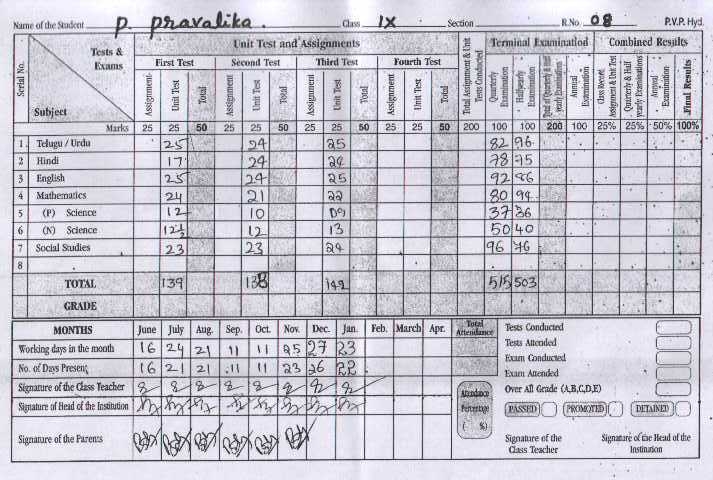 Name of the Student P. Pravalika. Class IX Section R.No. 08 P.V.P. Hyd.
Serial No. Tests & Exams Subject Unit Test and Assignments Total Assignment & Unit Tests Conducted Terminal Examination Combined Results
First Test Second Test Third Test Fourth Test
Assignment Unit Test Total Assignment Unit Test Total Assignment Unit Test Total Assignment Unit Test Total Quarterly Examination Halfyearly Examination Total of Quarterly & Half yearly Examinations Annual Examination Class Record, Assignment & Unit Test Quarterly & Half yearly Examinations Annual Examination Final Results
Marks 25 25 50 25 25 50 25 25 50 25 25 50 200 100 100 200 100 25% 25% 50% 100%
1 Telugu / Urdu 25 24 25 82 96
2 Hindi 17 24 24 78 75
3 English 25 24 25 92 86
4 Mathematics 24 21 22 80 94
5 (P) Science 12 10 09 37 36
6 (N) Science 12½ 12 13 50 40
7 Social Studies 23 23 24 96 76
8
TOTAL 139 138 142 515 503
GRADE
MONTHS June July Aug. Sep. Oct. Nov. Dec. Jan. Feb. March Apr. Total Attendance
Working days in the month 16 24 21 11 11 25 27 23
No. of Days Present 16 21 21 11 11 23 26 22
Signature of the Class Teacher
Signature of Head of the Institution
Signature of the Parents
Attendance Percentage ( %)
Tests Conducted
Tests Attended
Exam Conducted
Exam Attended
Over All Grade (A,B,C,D,E)
PASSED PROMOTED DETAINED
Signature of the Class Teacher Signature of the Head of the Institution